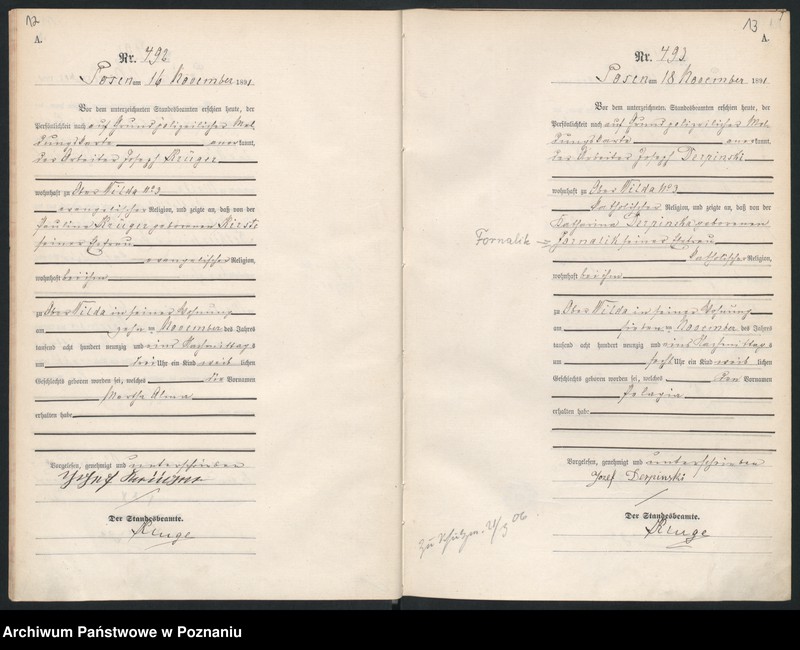 12
A.
Nr. 792
Posen am 16 November 1891
Vor dem unterzeichneten Standesbeamten erschien heute, der
Persönlichkeit nach auf Grund polizeilicher Mel-
dungskarte anerkannt,
der Arbeiter Joseph Krüger
wohnhaft zu Ober Wilda No 3
evangelischer Religion, und zeigte an, daß von der
Pauline Krüger geborenen
seiner Ehefrau
evangelischer Religion,
wohnhaft bei ihm
zu Ober Wilda in seiner Wohnung
am zehn ten November des Jahres
tausend acht hundert neunzig und eins Nachmittags
um drei Uhr ein Kind weib lichen
Geschlechts geboren worden sei, welches die Vornamen
Martha Alma
erhalten habe
Vorgelesen, genehmigt und unterschrieben
Der Standesbeamte.
Kluge
13
A.
Nr. 793
Posen am 18 November 1891
Vor dem unterzeichneten Standesbeamten erschien heute, der
Persönlichkeit nach auf Grund polizeilicher Mel-
dungskarte anerkannt,
der Arbeiter Joseph Derpinski
wohnhaft zu Ober Wilda No 3
katholischer Religion, und zeigte an, daß von der
Katharina Derpinska geborenen
Fornalik = Fornalik seiner Ehefrau
katholischer Religion,
wohnhaft bei ihm
zu Ober Wilda in seiner Wohnung
am ten November des Jahres
tausend acht hundert neunzig und eins Nachmittags
um sechs Uhr ein Kind weib lichen
Geschlechts geboren worden sei, welches den Vornamen
Pelagia
erhalten habe
Vorgelesen, genehmigt und unterschrieben
Jozef Derpinski
Der Standesbeamte.
Kluge
Archiwum Państwowe w Poznaniu